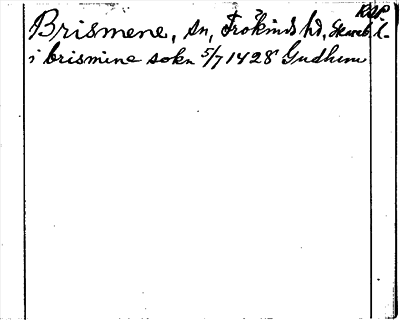 RAP
Brismene, sn, Frökinds hd, Skarab. l.
i brismine sokn 5/7 1428 Gudhem